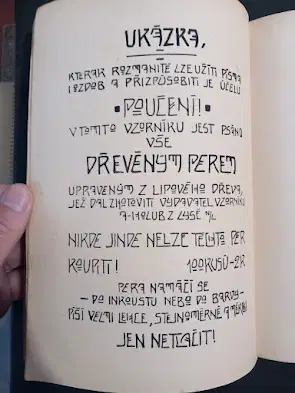 UKÁZKA,
KTERAK ROZMANITĚ LZE UŽÍTI PÍSMA
I OZDOB A PŘIZPŮSOBITI JE ÚČELU
POUČENÍ!
V TOMTO VZORNÍKU JEST PSÁNO
VŠE
DŘEVĚNÝM PEREM
UPRAVENÝM Z LIPOVÉHO DŘEVA,
JEŽ DAL ZHOTOVITI VYDAVATEL VZORNÍKU
A-HOLUB Z LYSÉ N/L
NIKDE JINDE NELZE TĚCHTO PER
KOUPITI! 100KUSŮ-2K
PERA NAMÁČÍ SE
-DO INKOUSTU NEBO DO BARVY-
PÍŠÍ VELMI LEHCE, STEJNOMĚRNĚ A MĚKCE
JEN NETLAČIT!